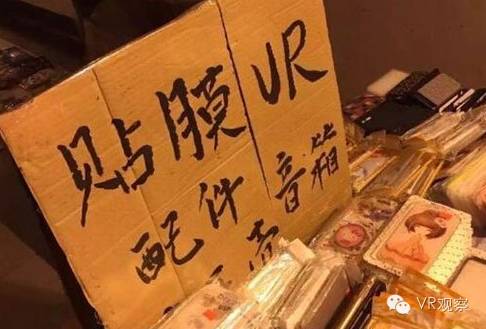 贴膜VR
配件音箱
VR观察